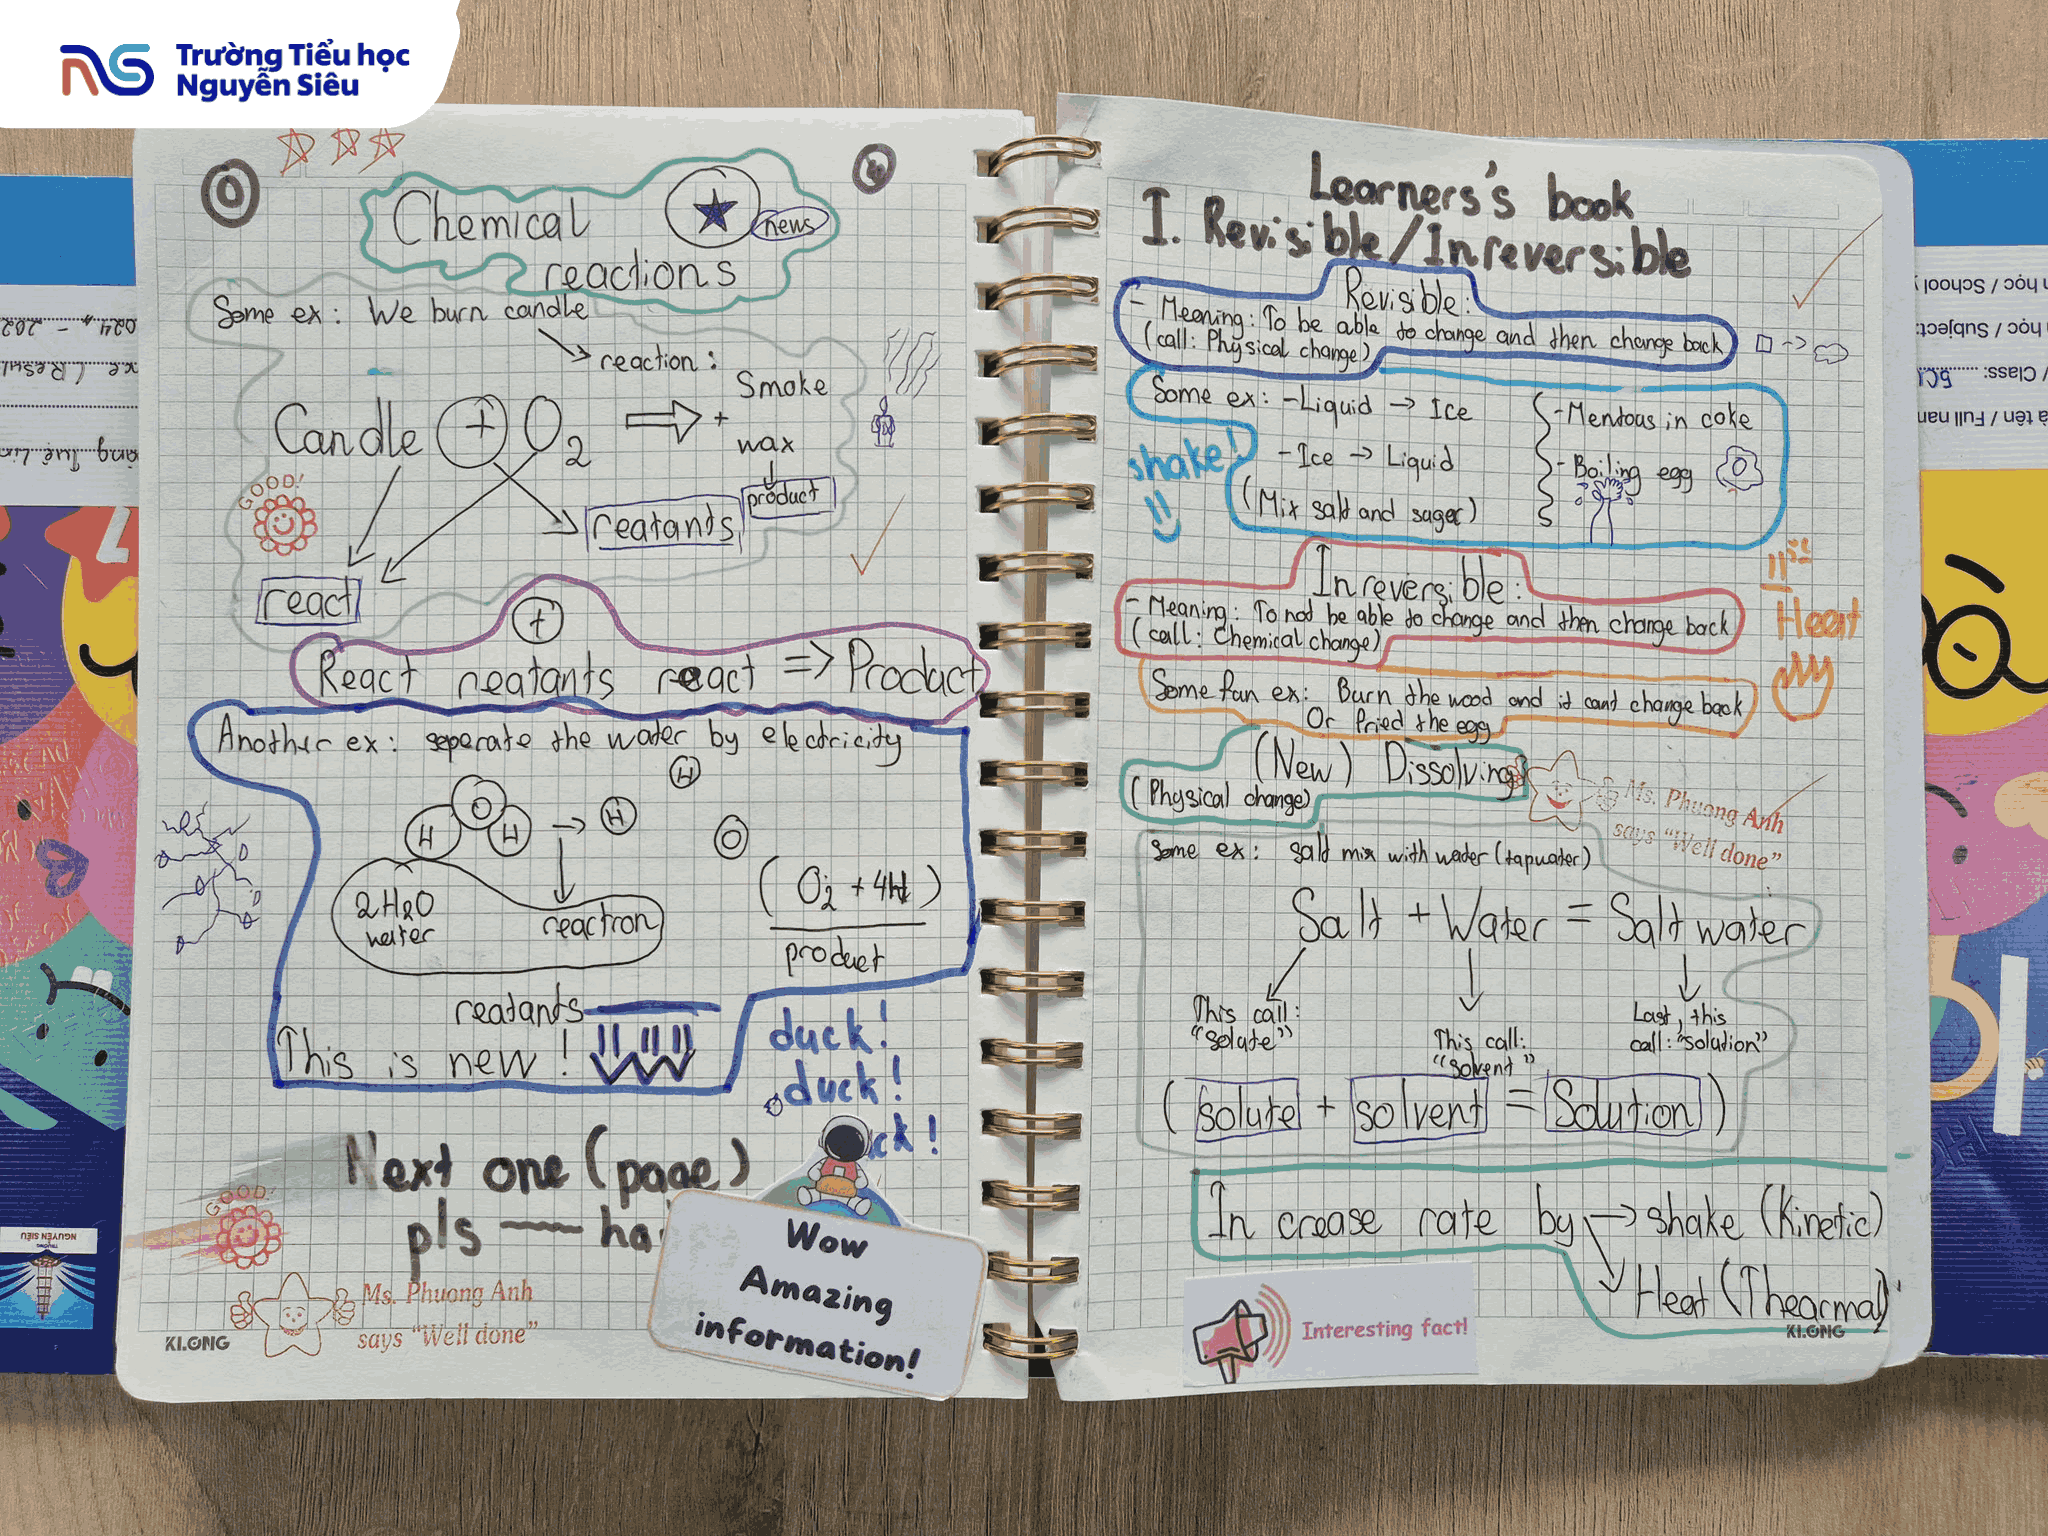 Trường Tiểu học
Nguyễn Siêu
Chemical
news
reactions
Some ex: We burn candle
reaction:
Candle + O2
Smoke
+
wax
product
GOOD!
reatants
react
+
React reatants react => Product
Another ex: seperate the water by electricity
H
H O H → H
O
2H2O
water
reaction
(O2 + 4H)
product
reatants
This is new!
duck!
duck!
ck!
Next one (page)
pls
GOOD!
Ms. Phuong Anh
says "Well done"
KLONG
Wow
Amazing
information!
Learners's book
I. Revisible/Inreversible
Revisible:
- Meaning: To be able to change and then change back
(call: Physical change)
Some ex: -Liquid → Ice
- Ice → Liquid
(Mix salt and suger)
- Mentous in coke
- Boiling egg
shake!
Inreversible:
- Meaning: To not be able to change and then change back
(call: Chemical change)
Heat
Some fun ex: Burn the wood and it cant change back
Or fried the egg
(New) Dissolving
(Physical change)
Ms. Phuong Anh
says "Well done"
Some ex: salt mix with water (tapwater)
Salt + Water = Salt water
This call:
"Solute"
This call:
"Solvent"
Last, this
call: "solution"
(solute + solvent = Solution)
In crease rate by → shake (Kinetic)
Heat (Thearmal)
KLONG
Interesting fact!
học / School
học / Subject:
/ Class: 5C
tên / Full nam
NGUYỄN SIÊU